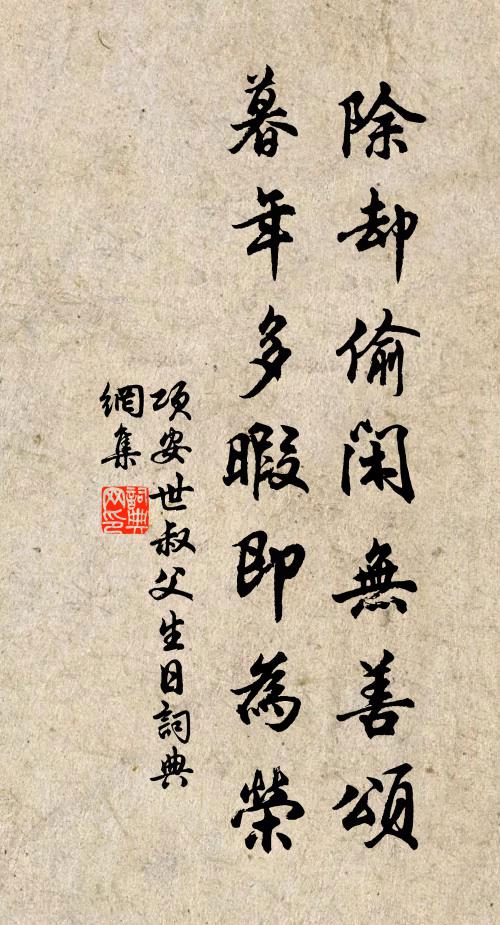 除却偷閑無善頌
暮年多暇即為榮
項安世叔父生日詞典
網集
詞典
网印